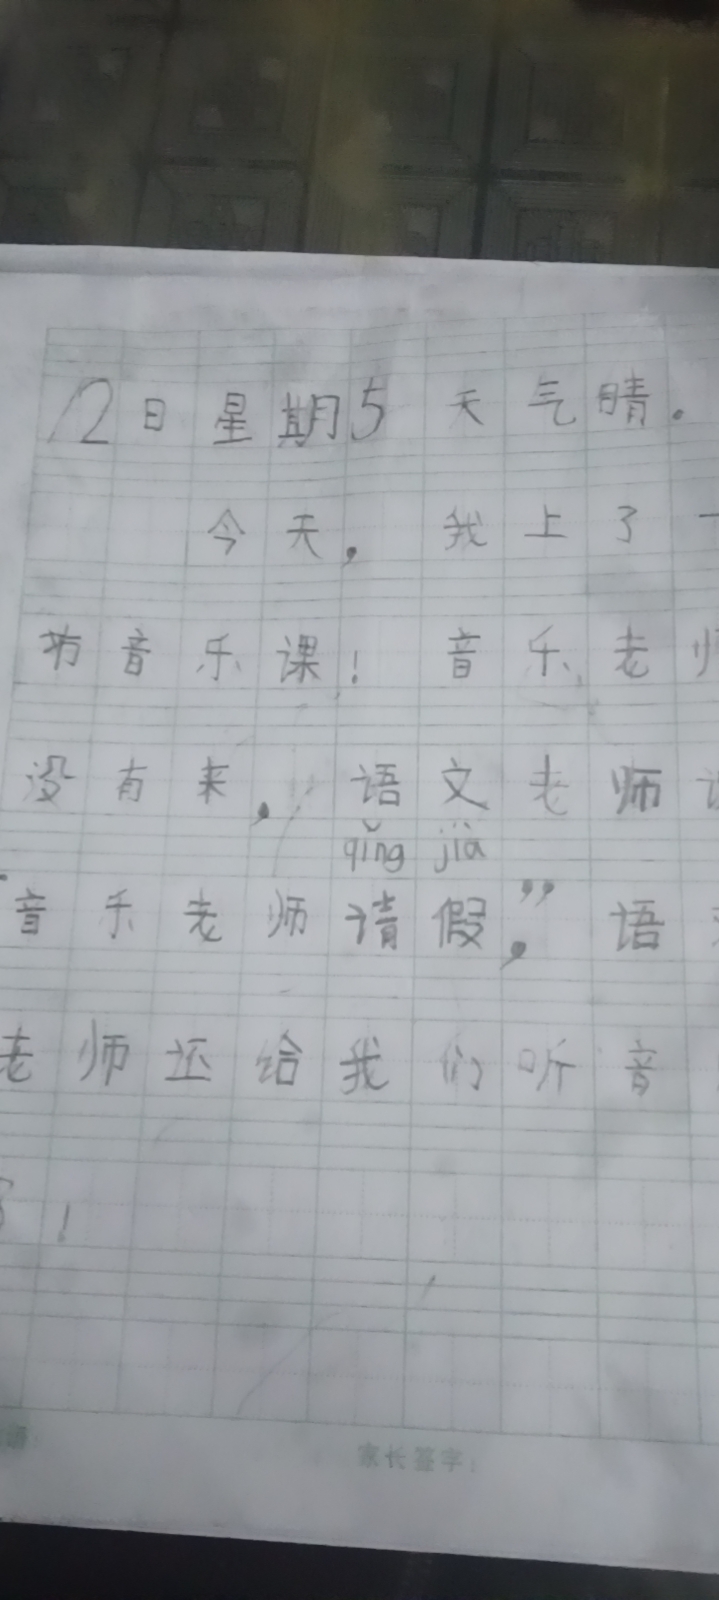 12日星期5 天气晴。
今天，我上了一
节音乐课！音乐老师
没有来，语文老师
qǐng jià
音乐老师请假，”语
老师还给我们听音
了！
家长签字：